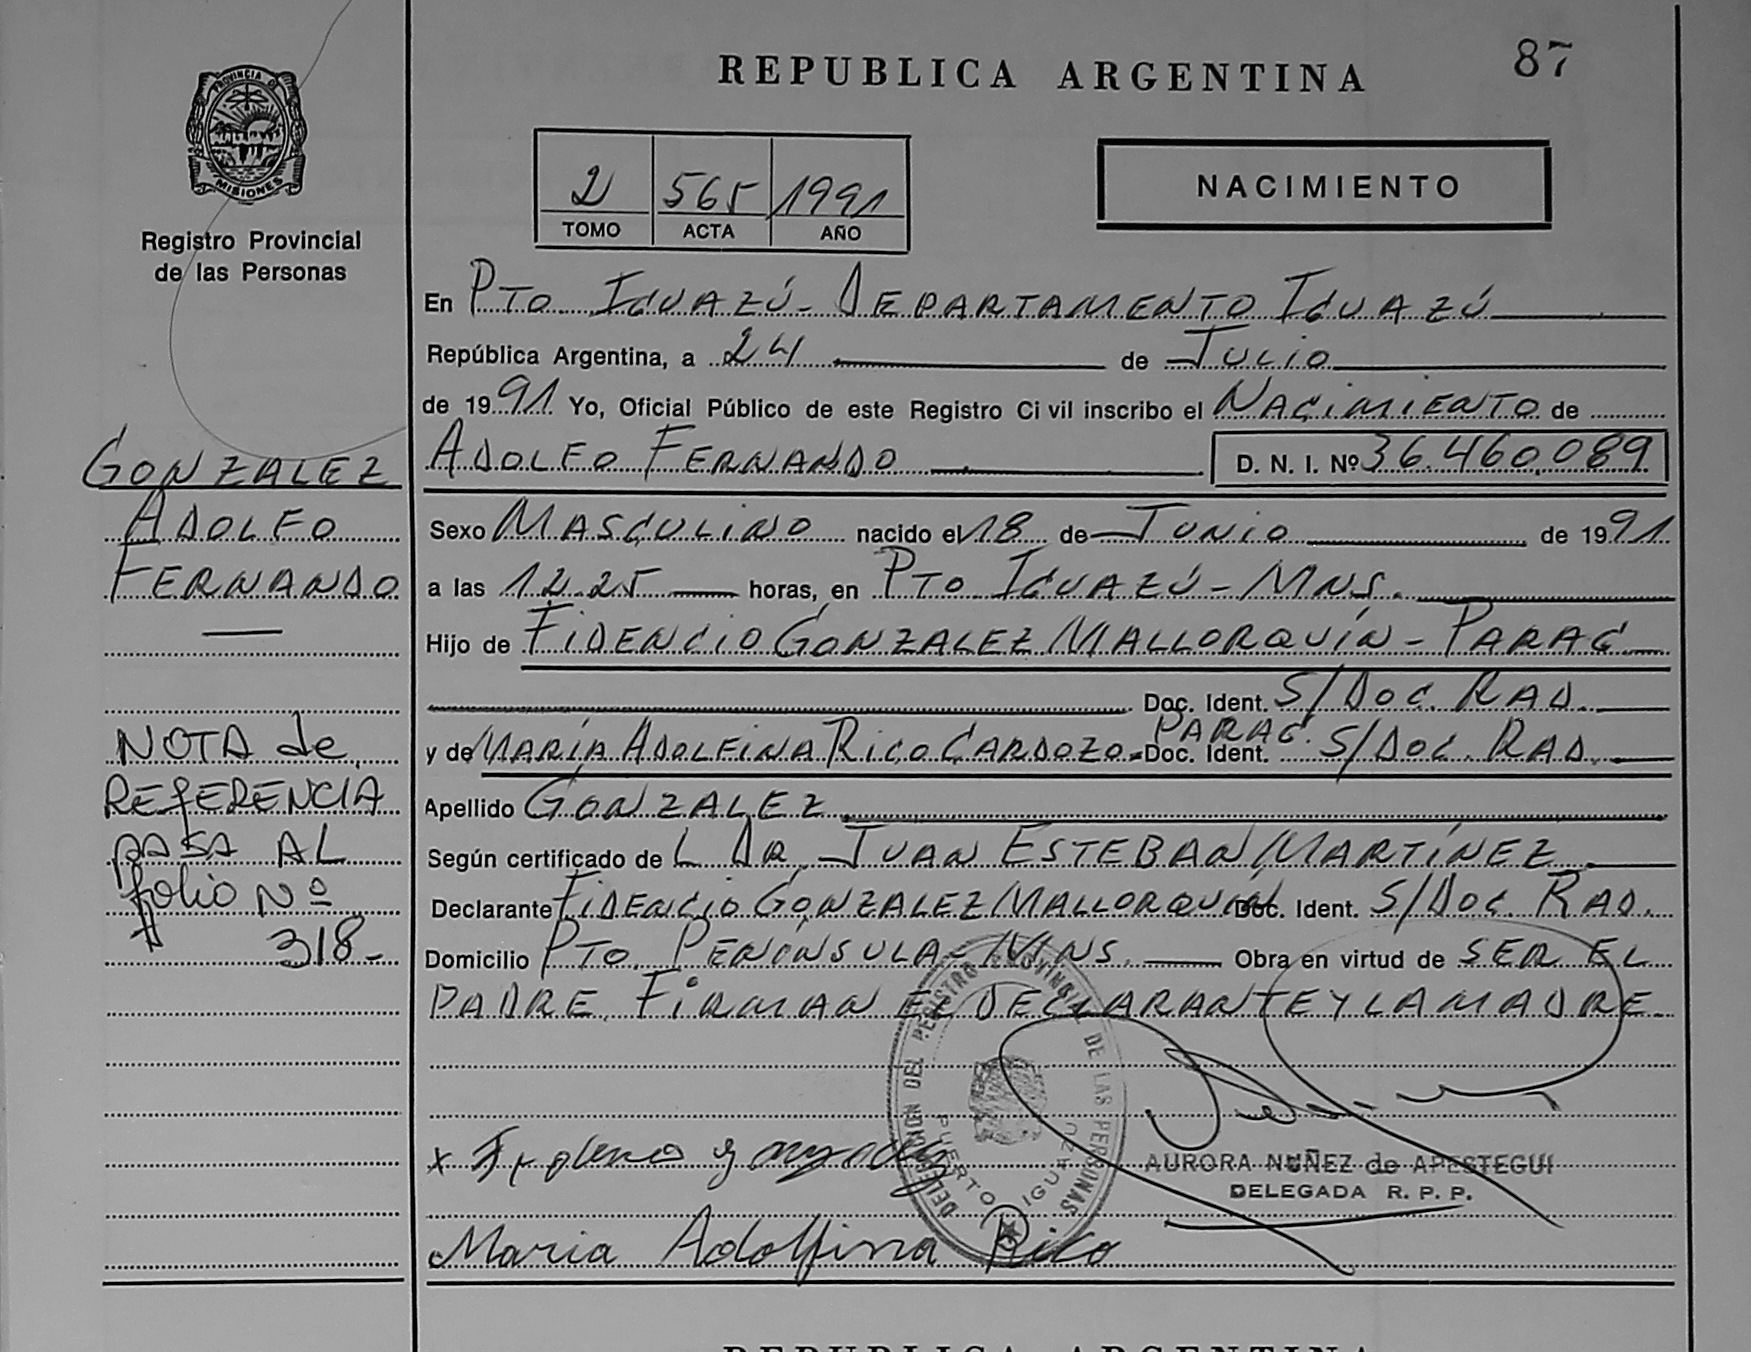 REPUBLICA ARGENTINA
87
PROVINCIA DE
MISIONES
Registro Provincial
de las Personas
2 565 1991
TOMO ACTA AÑO
NACIMIENTO
En PTO IGUAZÚ - DEPARTAMENTO IGUAZÚ
República Argentina, a 24 de JULIO
de 1991 Yo, Oficial Público de este Registro Civil inscribo el NACIMIENTO de
ADOLFO FERNANDO D. N. I. Nº 36.460.089
Sexo MASCULINO nacido el 18 de JUNIO de 1991
a las 12.25 horas, en PTO IGUAZÚ - MNS.
Hijo de FIDENCIO GONZALEZ MALLORQUÍN - PARAG
Doc. Ident. S/DOC. RAD.
PARAG.
y de MARÍA ADOLFINA RICO CARDOZO - Doc. Ident. S/DOC. RAD.
Apellido GONZALEZ
Según certificado de L DR. JUAN ESTEBAN MARTÍNEZ
Declarante FIDENCIO GONZALEZ MALLORQUIN Doc. Ident. S/DOC. RAD.
Domicilio PTO. PENÍNSULA - MNS. Obra en virtud de SER EL
PADRE. FIRMAN EL DECLARANTE Y LA MADRE.
GONZALEZ
ADOLFO
FERNANDO
NOTA de
REFERENCIA
PASA AL
folio Nº
318-
DELEGACION DEL REGISTRO PROVINCIAL DE LAS PERSONAS
PUERTO IGUAZU
AURORA NUÑEZ de APESTEGUI
DELEGADA R. P. P.
x
Maria Adolfina Rico
REPUBLICA ARGENTINA